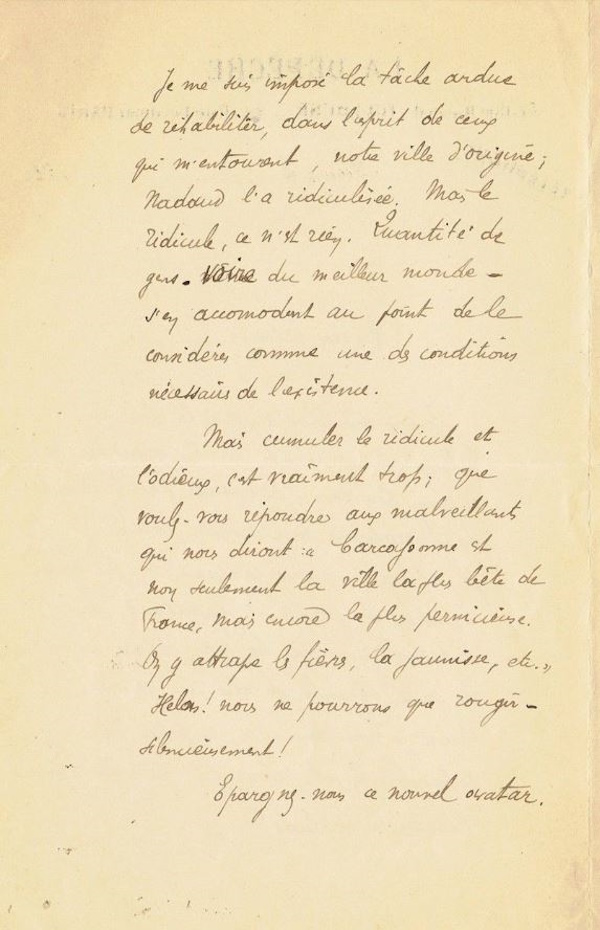 Je me suis imposé la tâche ardue
de réhabiliter, dans l'esprit de ceux
qui m'entourent, notre ville d'origine ;
Nadaud l'a ridiculisée. Mais le
ridicule, ce n'est rien. Quantité de
gens - voire du meilleur monde -
s'en accomodent au point de le
considérer comme une des conditions
nécessaires de l'existence.
Mais cumuler le ridicule et
l'odieux, c'est vraiment trop ; que
voulez-vous répondre aux malveillants
qui nous diront : « Carcassonne est
non seulement la ville la plus bête de
France, mais encore la plus pernicieuse.
On y attrape les fièvres, la jaunisse, etc. »
Hélas ! nous ne pourrons que rougir -
silencieusement !
Epargnez-nous ce nouvel avatar.